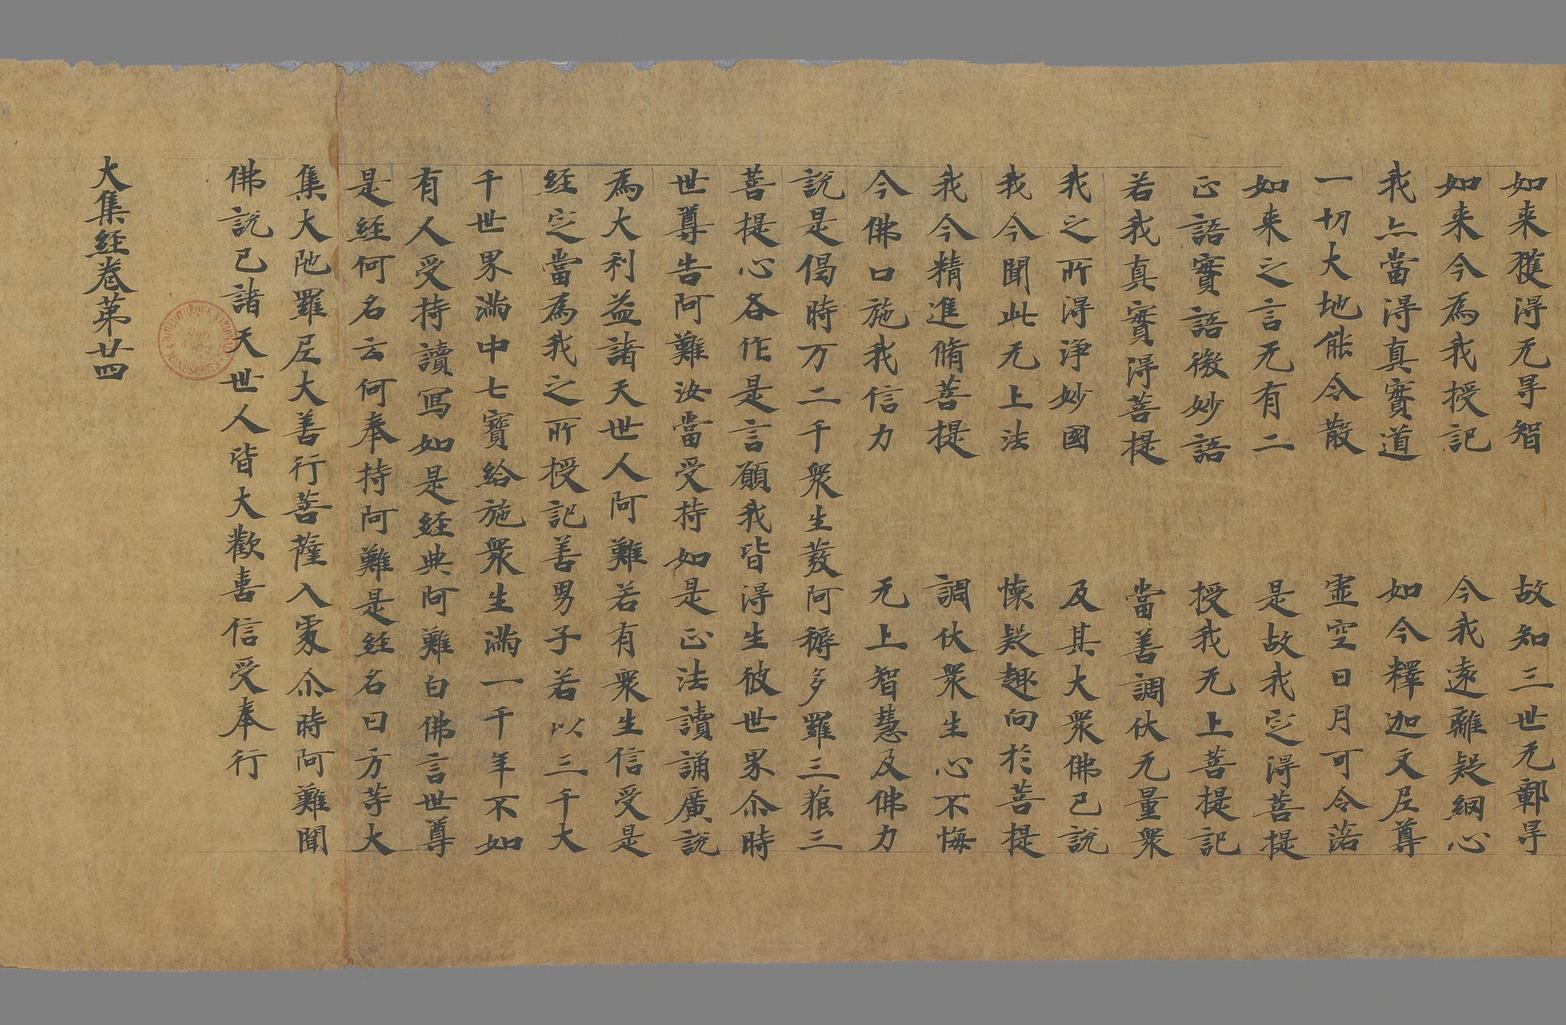 如来獲得无㝵智　故知三世无鄣㝵
如来今為我授記　今我遠離疑網心
我亦當得真實道　如今釋迦文尼尊
一切大地能令散　虛空日月可令落
如来之言无有二　是故我定得菩提
正語實語微妙語　授我无上菩提記
若我真實得菩提　當善調伏无量衆
我之所得淨妙國　及其大衆佛已說
我今聞此无上法　懷疑趣向於菩提
我今精進脩菩提　調伏衆生心不悔
今佛口施我信力　无上智慧及佛力
說是偈時万二千衆生發阿耨多羅三藐三
菩提心各作是言願我皆得生彼世界尒時
世尊告阿難汝當受持如是正法讀誦廣說
為大利益諸天世人阿難若有衆生信受是
經定當為我之所授記善男子若以三千大
千世界滿中七寶給施衆生滿一千年不如
有人受持讀寫如是經典阿難白佛言世尊
是經何名云何奉持阿難是經名曰方等大
集大陁羅尼大善行菩薩入處尒時阿難聞
佛說已諸天世人皆大歡喜信受奉行
大集經卷第廿四